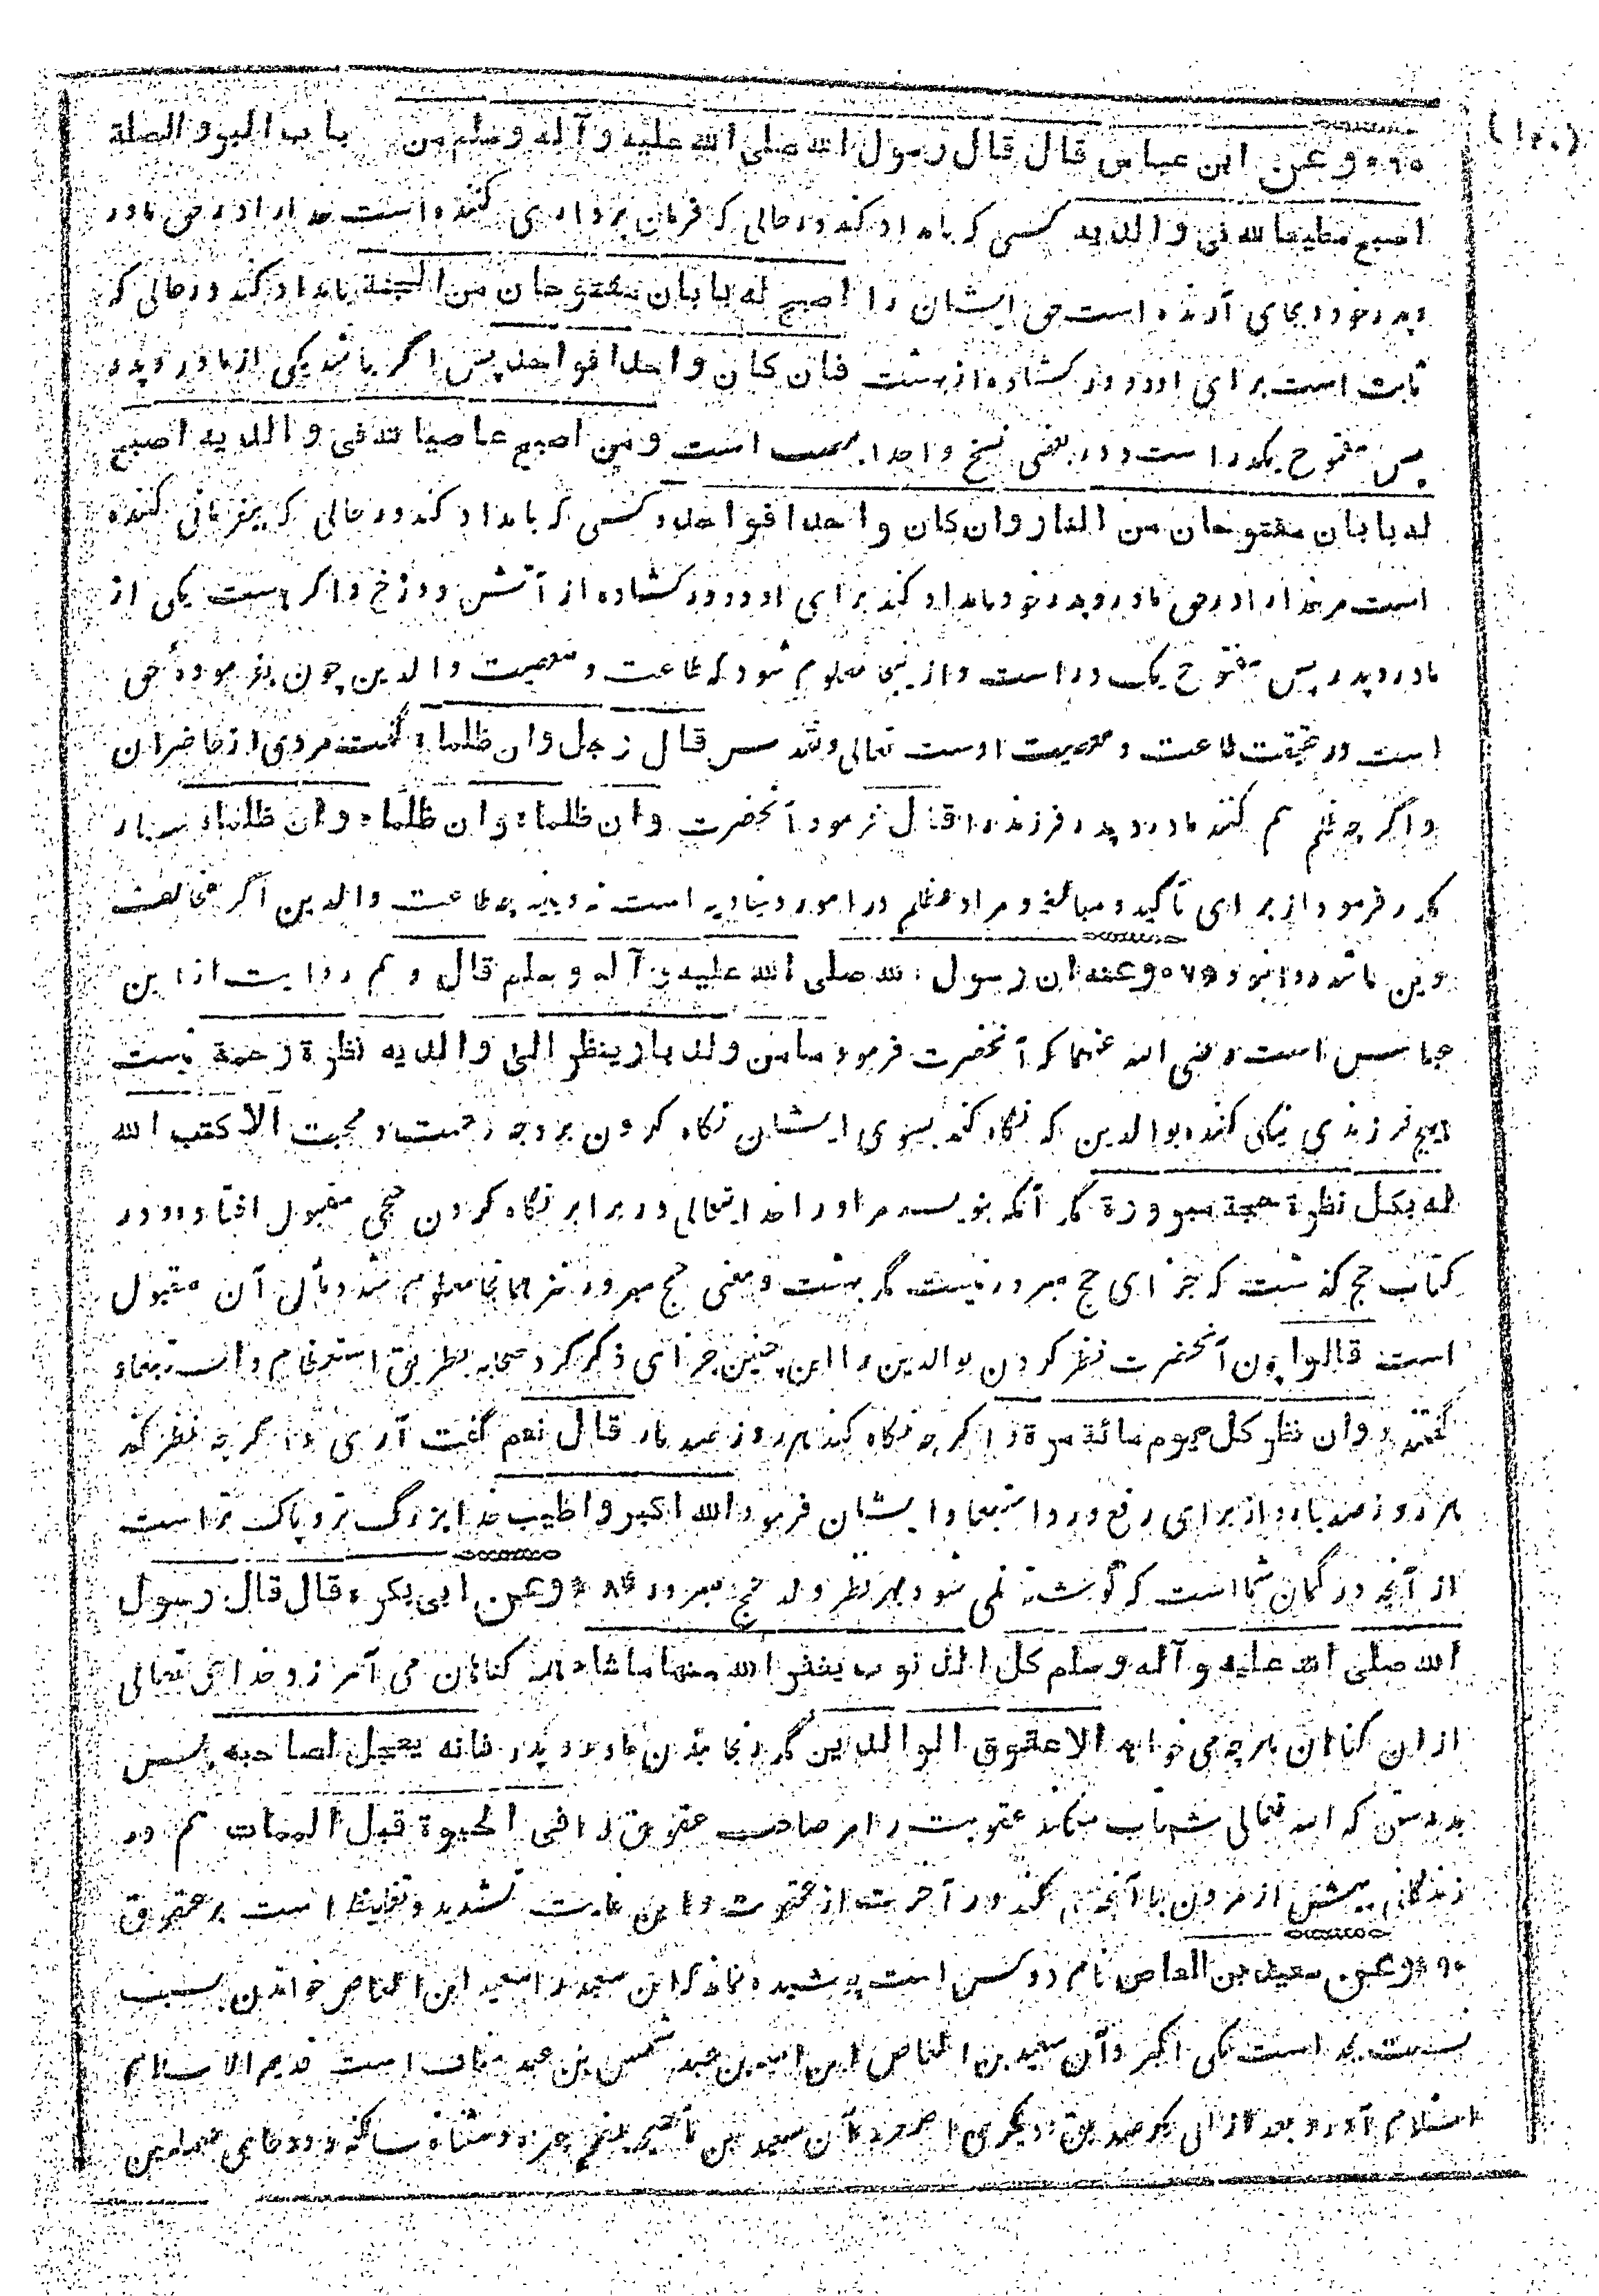 (١٢٠)
باب البر والصلة
وعن ابن عباس قال قال رسول الله صلى الله عليه وآله وسلم من
اصبح مطيعا لله فى والديه كسى كه بامداد كند در حالى كه فرمان بردارى كننده است خدارا در حق مادر
وپدر خود وبجاى آرنده است حق ايشان را اصبح له بابان مفتوحان من الجنة بامداد كند در حالى كه
ثابت است براى او دو در كشاده از بهشت فان كان واحدا فواحد پس اگر باشد يكى از مادر وپدر
پس مفتوح يكدر است ودر بعضى نسخ واحدا است ومن اصبح عاصيا لله فى والديه اصبح
له بابان مفتوحان من النار وان كان واحدا فواحد وكسى كه بامداد كند در حالى كه بيفرمانى كننده
است مر خدارا در حق مادر وپدر خود بامداد كند براى او دو در كشاده از آتش دوزخ واگر هست يكى از
مادر وپدر پس مفتوح يك در است وازينجا معلوم شود كه طاعت ومعصيت والدين چون بفرموده حق
است در حقيقت طاعت ومعصيت اوست تعالى وتقدس قال رجل وان ظلماه گفت مردى از حاضران
واگر چه ظلم هم كنند مادر وپدر فرزند را قال فرمود آنحضرت وان ظلماه وان ظلماه وان ظلماه سه بار
مكرر فرمود از براى تأكيد ومبالغه ومراد ظلم در امور دنياويه است نه دينيه چه طاعت والدين اگر مخالف
دين باشد روا نبود وعنه ان رسول الله صلى الله عليه وآله وسلم قال وهم روايت از ابن
عباس است رضى الله عنهما كه آنحضرت فرمود ما من ولد بار ينظر الى والديه نظرة رحمة نيست
هيچ فرزندى نيكى كننده بوالدين كه نگاه كند بسوى ايشان نگاه كردن بر وجه رحمت ومحبت الا كتب الله
له بكل نظرة حجة مبرورة مگر آنكه بنويسد مر اورا خدايتعالى در برابر نگاه كردن حجى مقبول افتاده ودر
كتاب حج گذشت كه جزاى حج مبرور نيست مگر بهشت ومعنى حج مبرور نيز همانجا معلوم شد ومآل آن مقبول
است قالوا چون آنحضرت نظر كردن بوالدين را اين چنين جزاى ذكر كرد صحابه بطريق استعظام واستبعاد
گفتند وان نظر كل يوم مائة مرة واگر چه نگاه كند هر روز صد بار قال نعم گفت آرى واگر چه نظر كند
هر روز صد بار واز براى رفع ورد استبعاد ايشان فرمود الله اكبر واطيب خدا بزرگ تر وپاك تر است
از آنچه در گمان شما است كه نوشته نمى شود بهر نظر ولد حج مبرور وعن ابى بكرة قال قال رسول
الله صلى الله عليه وآله وسلم كل الذنوب يغفر الله منها ما شاء همه گناهان مى آمرزد خداى تعالى
از ان گناهان هر چه مى خواهد الا عقوق الوالدين مگر رنجانيدن مادر وپدر فانه يعجل لصاحبه پس
بدرستى كه الله تعالى شتاب ميكند عقوبت را مر صاحب عقوق را فى الحيوة قبل الممات هم در
زندگانى پيش از مردن با آنچه كند در آخرت از عقوبت واين غايت تشديد وتغليظ است بر عقوق
وعن سعيد بن العاص نام دو كس است پوشيده نماند كه اين سعيد را سعيد ابن العاص خواندن بسبب
نسبت بجد است يكى اكبر وآن سعيد بن العاص ابن اميه بن عبد شمس بن عبد مناف است قديم الاسلام
اسلام آورد بعد از ابى بكر صديق وديگرى اصغر وآن سعيد بن